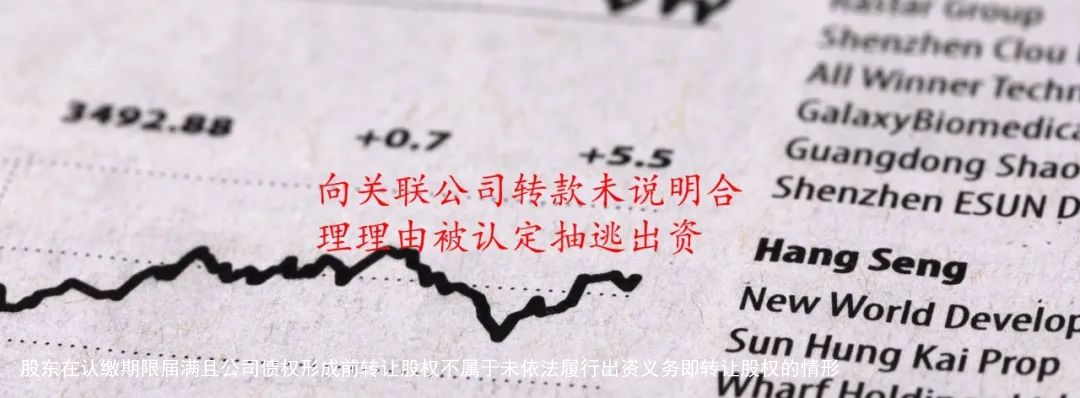 Rastar Group
Shenzhen Clou
All Winner Techn
GalaxyBiomedica
Guangdong Shao
Shenzhen ESUN D
3492.88
+0.7
+5.5
向关联公司转款未说明合
理理由被认定抽逃出资
Hang Seng
New World Develop
Sun Hung Kai Prop
Wharf Holdings Ltd
股东在认缴期限届满且公司债权形成前转让股权不属于未依法履行出资义务即转让股权的情形